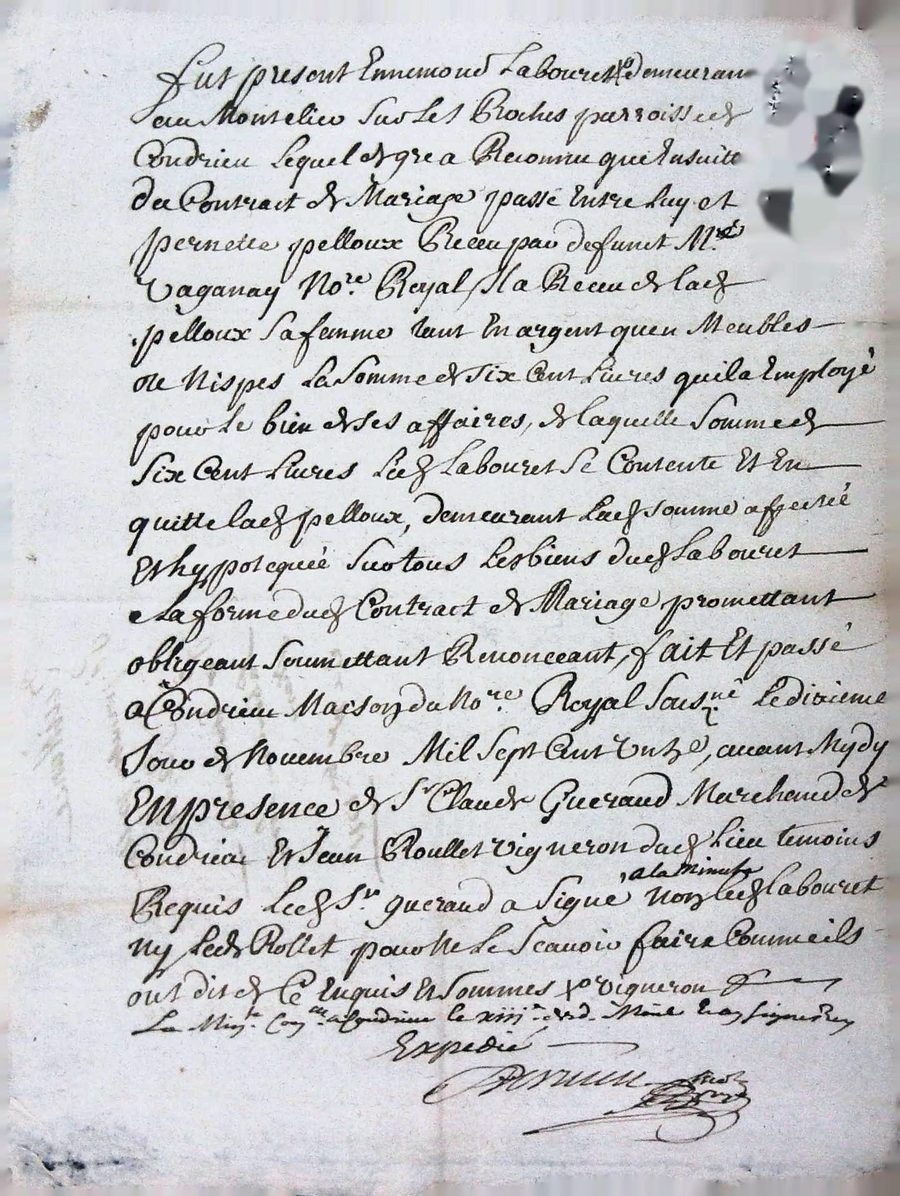 fut present Ennemond Labouret x demeurant
au Montelieu sur Les Roches parroisse de
Condrieu Lequel de gre a Reconnu que Ensuitte
du Contract de Mariage passé Entre Luy et
pernette pelloux Receu par defunct Me
Vaganay Nore Royal, Il a Receu de lad
pelloux sa femme tant En argent quen Meubles
ou Nispes La Somme de Six Cent Livres quila Employé
pour Le bien de ses affaires, de laquelle Somme de
Six Cent Livres Led Labouret Se Contente Et En
quitte lad pelloux, demeurant Lad Somme affectée
Et hypotequée Sur tous Les biens dud Labouret
a La forme dud Contract de Mariage promettant
obligeant Soumettant Renonceant, fait Et passé
a Condrieu Maison du Nore Royal Sousné Le dixieme
Jour de Novembre Mil Sept Cent Unze, avant Mydy
EN presence de Sr Claude Gueraud Marchand de
Condrieu Et Jean Roullet Vigneron dud Lieu temoins
Requis Led Sr gueraud a Signé a la Minute Non led Labouret
Ny Led Rollet pour Ne Le Scavoir faire Comme ils
ont dit de Ce Enquis Et Sommes x vigneron
La a Condrieu le xiij
Expedié